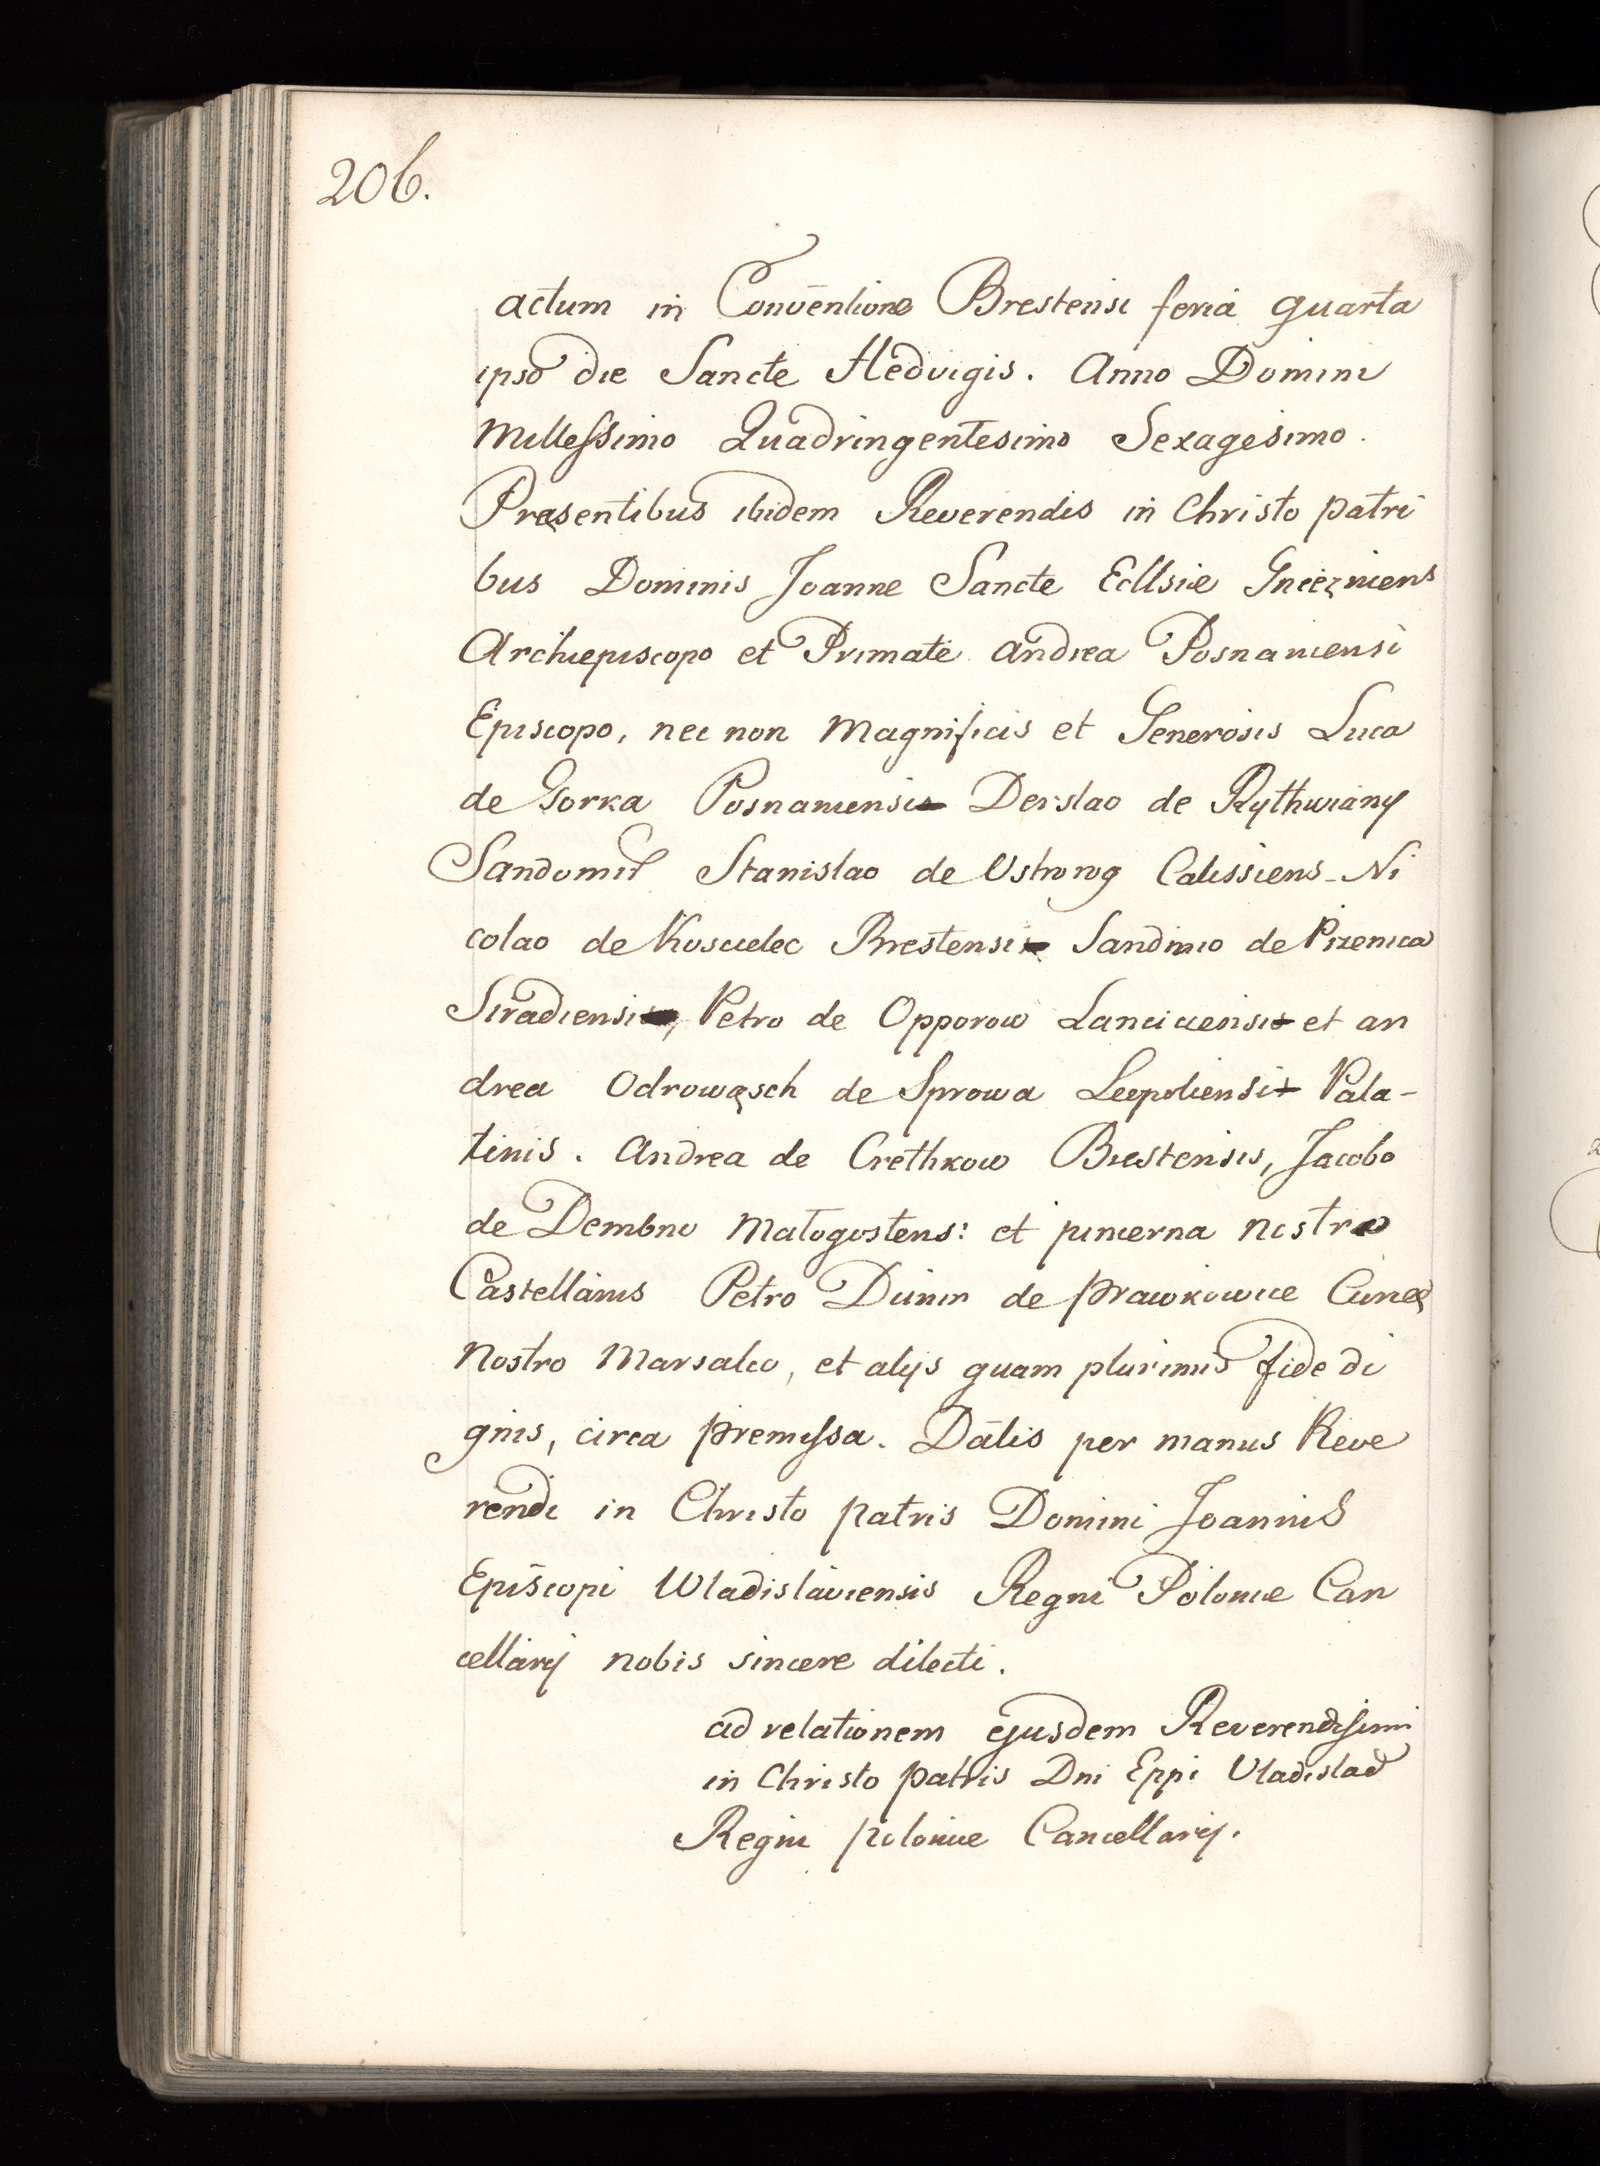 206.
actum in Conventione Brestensi feria quarta
ipso die Sancte Hedvigis. Anno Domini
Millessimo Quadringentesimo Sexagesimo.
Pręsentibus ibidem Reverendis in Christo patri
bus Dominis Joanne Sancte Ecllsie Gniezniens
Archiepiscopo et Primate Andrea Posnaniensi
Episcopo, nec non Magnificis et Generosis Luca
de Gorka Posnaniensi Derslao de Rythwiany
Sandomir Stanislao de Ostrorog Calissiens Ni
colao de Koscielec Brestensi Sandivio de
Siradiensi, Petro de Opporow Lanciciensi et an
drea Odrowąsch de Sprowa Leopoliensi Pala-
tinis. Andrea de Crethkow Brestensis, Jacobo
de Dembno Małogostens: et pincerna nostro
Castellanis Petro Dunin de Prawkowice Curię
nostro Marsalco, et alys quam plurimis fide di
gnis, circa premissa. Dātis per manus Reve
rendi in Christo patris Domini Joannis
Episcopi Wladislaviensis Regni Polonie Can
cellarij nobis sincere dilecti.
ad relationem ejusdem Reverendissimi
in Christo patris Dni Eppi Vladislav
Regni polonie Cancellarij.